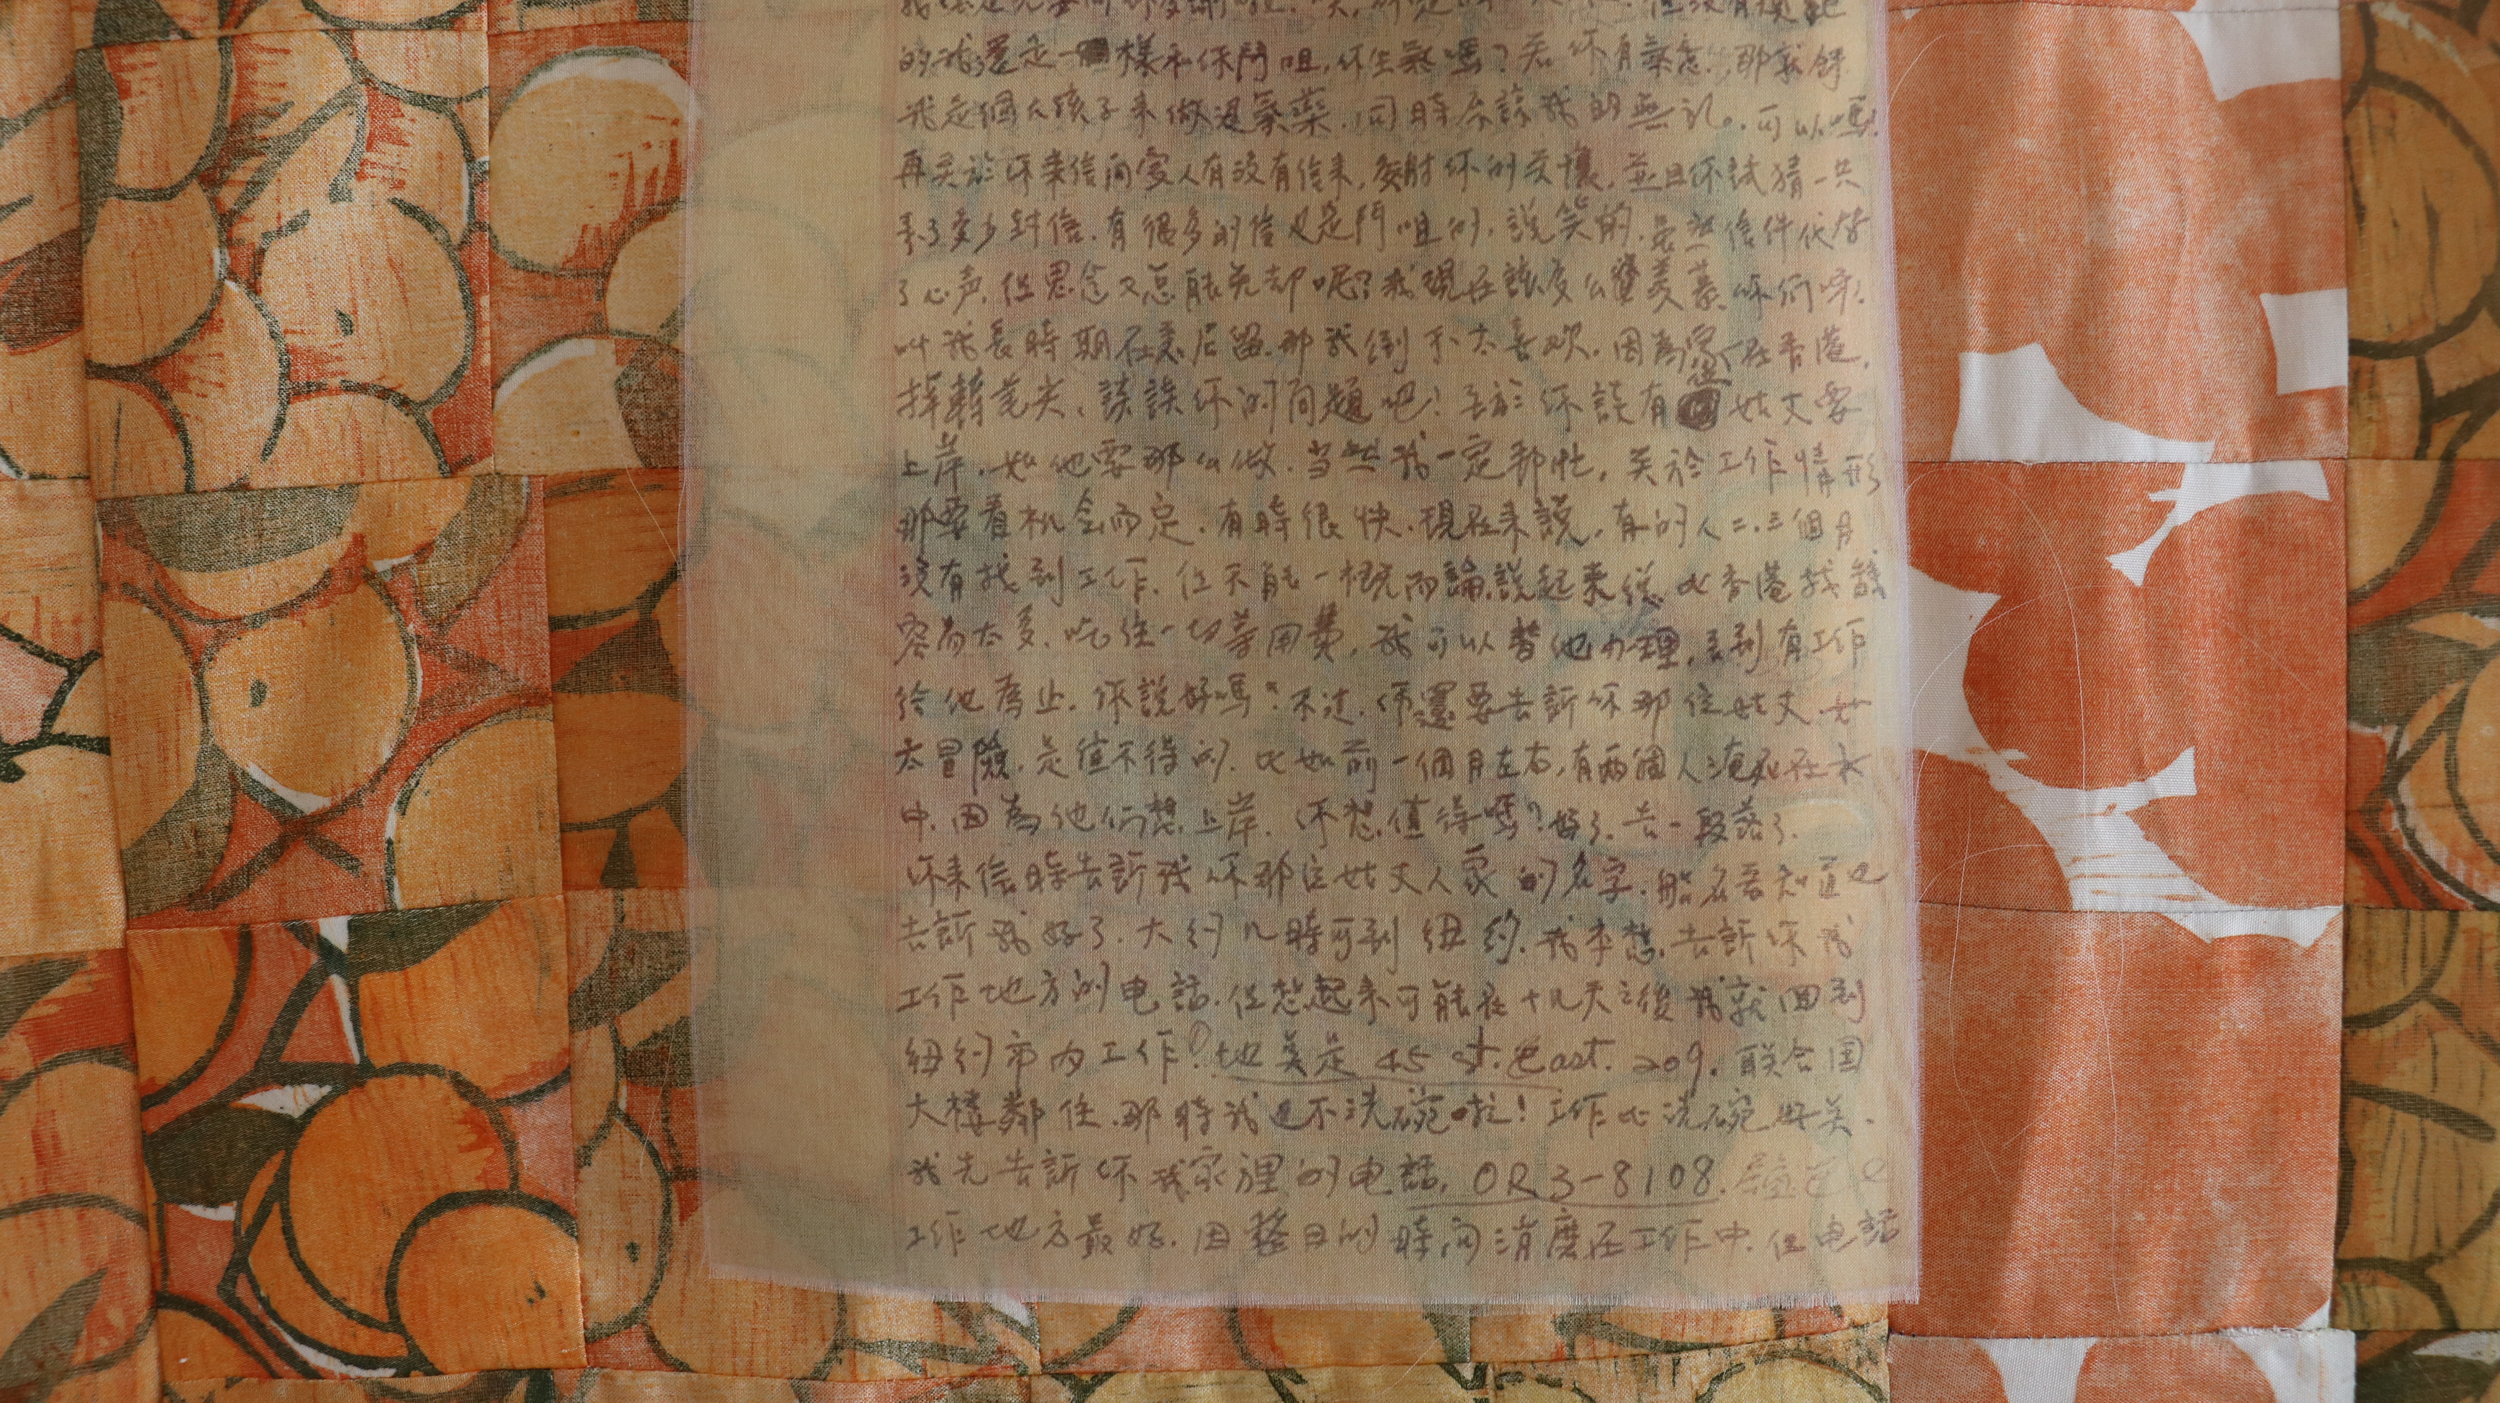 的我還是一樣和你鬥咀,你生氣嗎?若你有氣意,那就鋅
我是個大孩子來做退氣藥.同時原諒我的無礼。可以嗎?
再关於你來信问家人有没有信来,多謝你的关懷,並且你試猜一共
來了多少封信.有很多的信也是鬥咀的,說笑的.虽然信件代替
了心声.但思念又怎能免却呢?我現在該多么羨慕你们呀!
叫我長時期在美居留.那我倒不太喜欢.因為家在香港.
談談你的问題吧!至於你說有位姑丈要
上岸.如他要那么做.当然我一定帮忙,关於工作情形
那要看机会而定.有時很快.現在來說,有的人二.三個月
没有找到工作.但不能一概而論.說起來從比香港找錢
容易太多.吃住一切等用費,我可以替他办理,直到有工作
給他為止.你說好嗎?不过.你還要告訴你那位姑丈.如
太冒險.是值不得的.比如前一個月左右,有兩個人淹死在水
中.因為他们想上岸.你想值得嗎?好了.告一段落了.
你来信時告訴我你那位姑丈人家的名字.船名吾知道也
告訴我好了.大约几時可到纽约.我本想.告訴你我
工作地方的电話.但想起来可能在十几天之後我就回到
纽约市内工作?地美是45 st. East. 209.联合国
大楼鄰住.那時我也不洗碗啦!工作比洗碗好美.
我先告訴你我家裡的电話,OR3-8108.
工作地方最好.因整日的時间消度在工作中.但电話